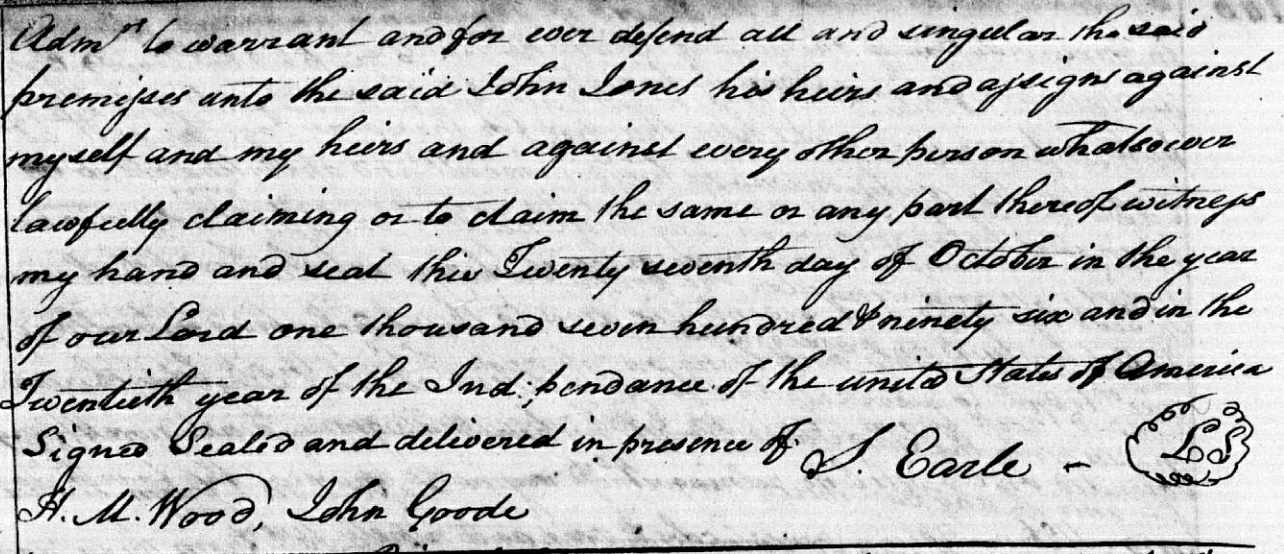 Admrs to warrant and for ever defend all and singular the said
premisses unto the said John Jones his heirs and assigns against
myself and my heirs and against every other person whatsoever
lawfully claiming or to claim the same or any part thereof witness
my hand and seal this Twenty seventh day of October in the year
of our Lord one thousand seven hundred & ninety six and in the
Twentieth year of the Independance of the united States of America
Signed Sealed and delivered in presence of S. Earle - LS
H. M. Wood, John Goode